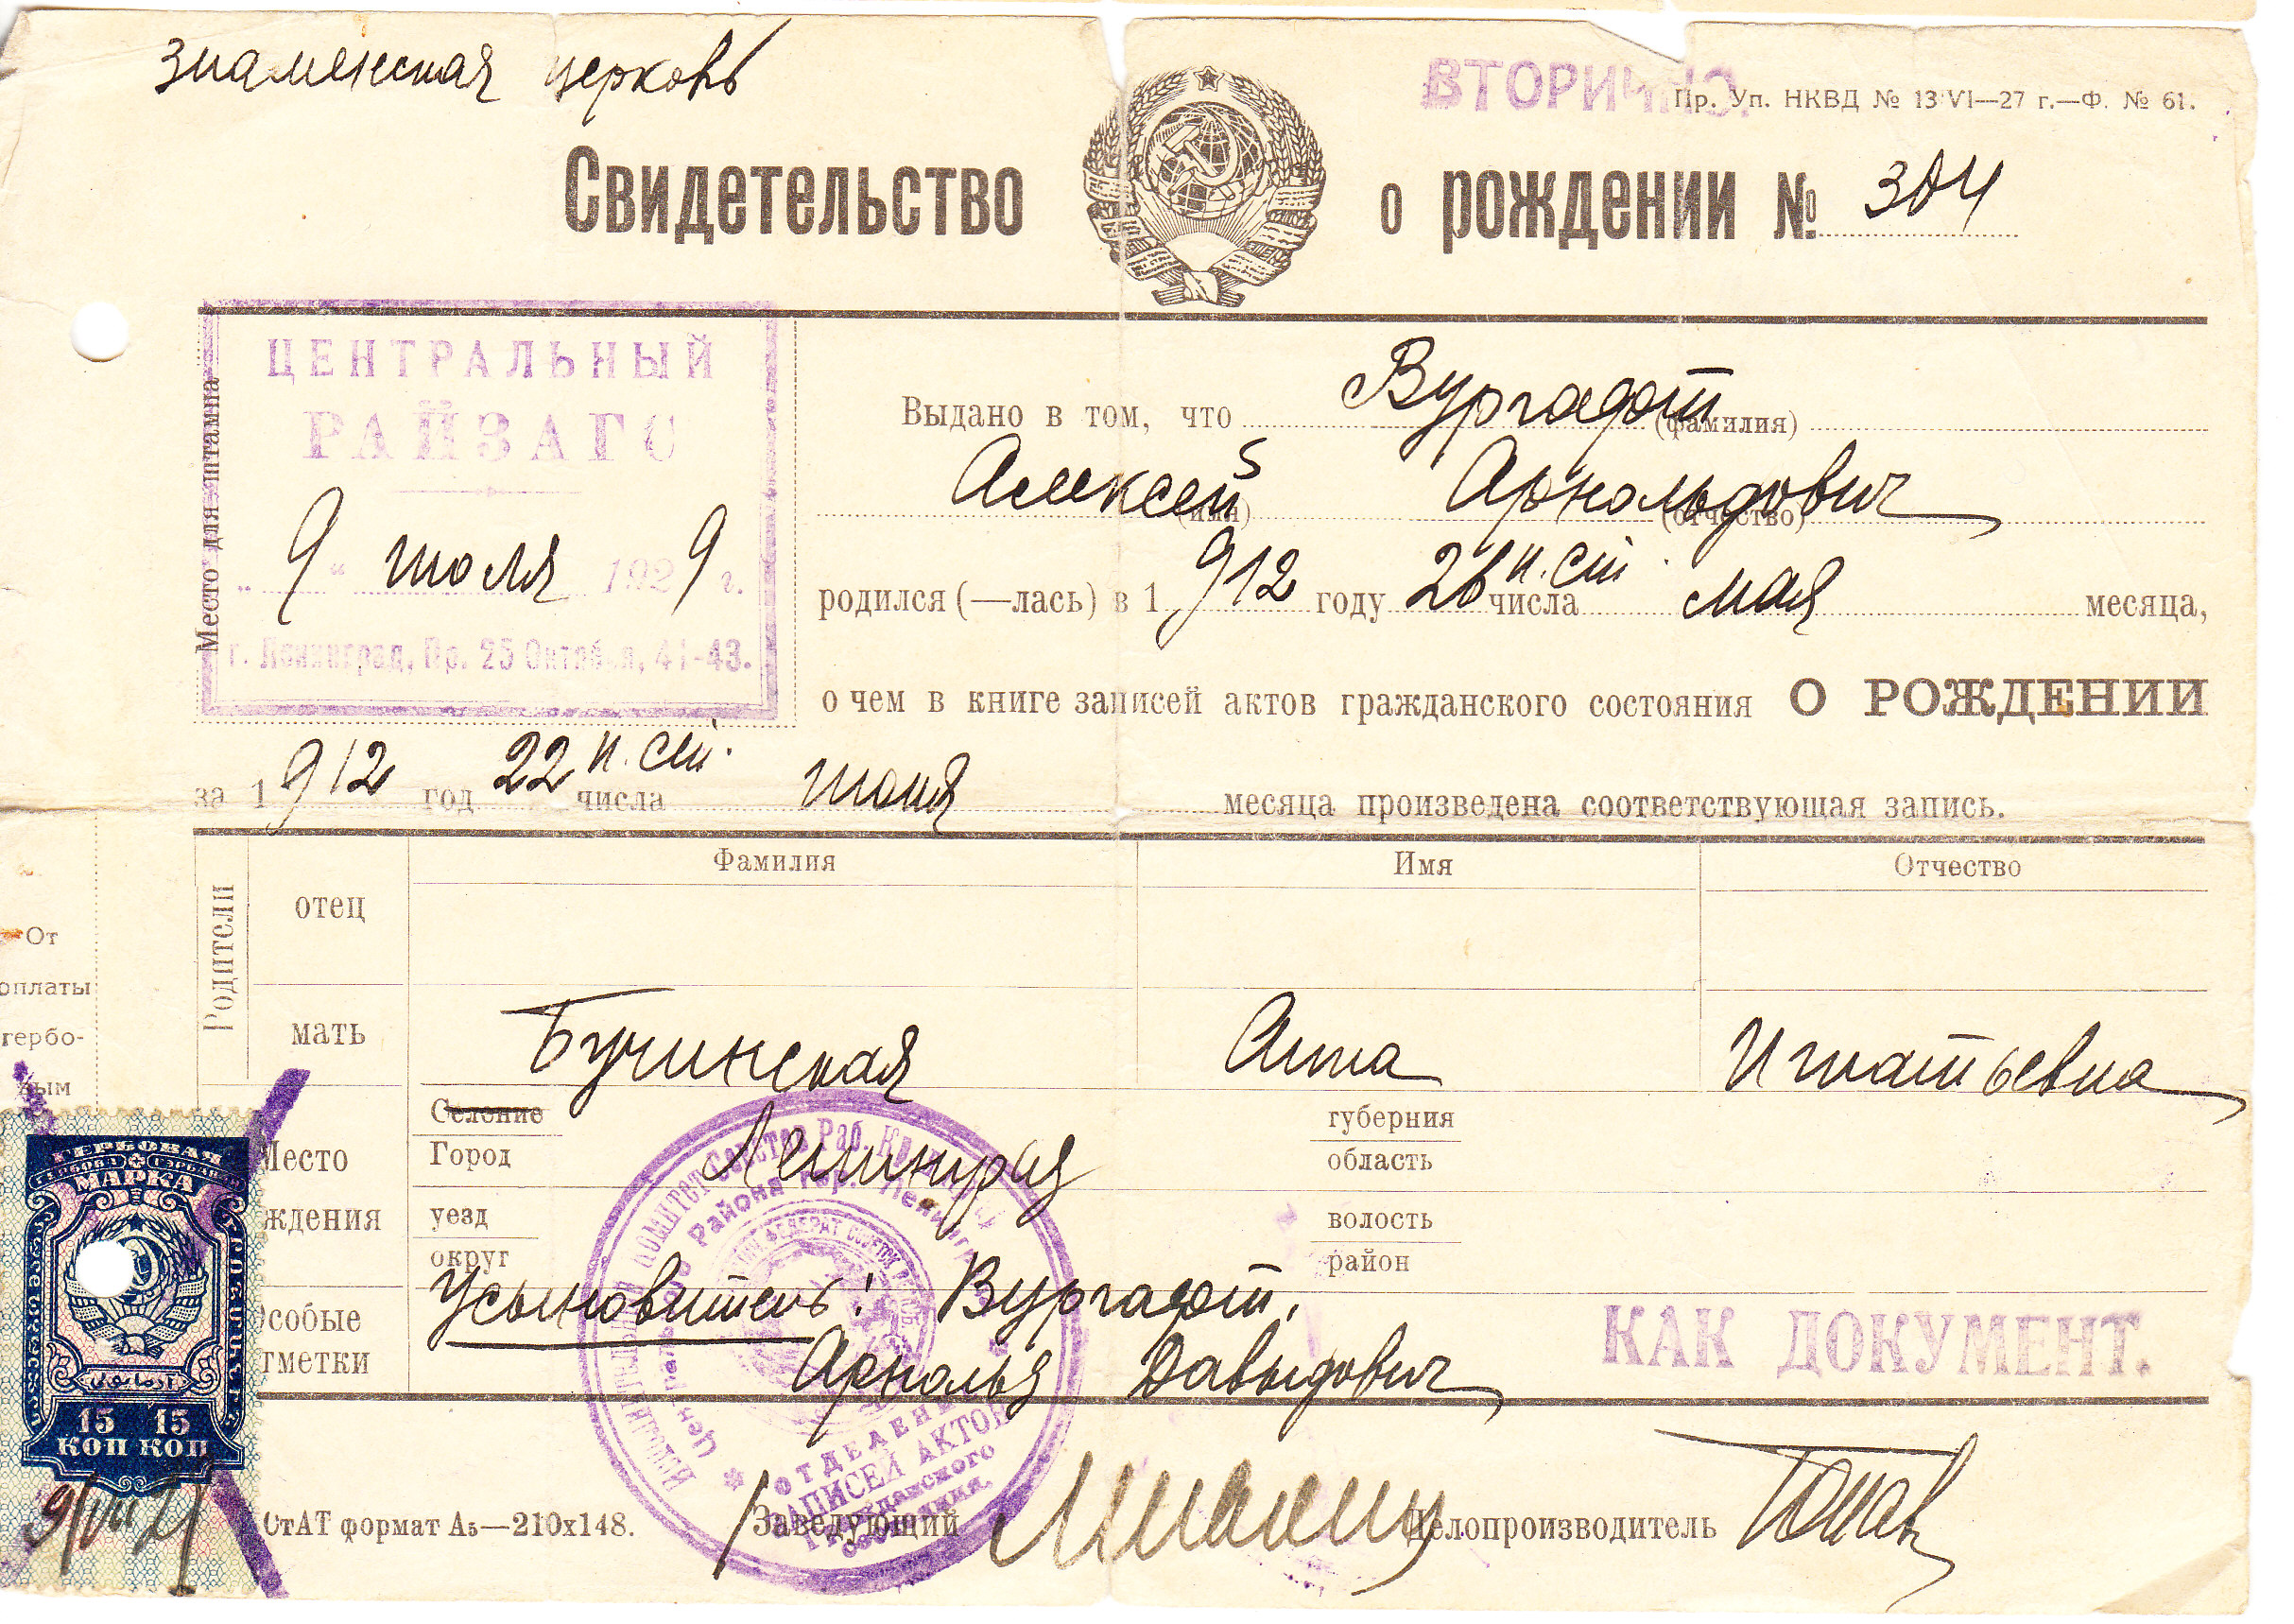 Знаменская церковь
ВТОРИЧНО.
Пр. Уп. НКВД № 13/VI—27 г.—Ф. № 61.
Свидетельство о рождении № 304
Место для штампа
ЦЕНТРАЛЬНЫЙ
РАЙЗАГС
„ 9 “ июля 1929 г.
г. Ленинград, Пр. 25 Октября, 41-43.
Выдано в том, что Вургафт (фамилия)
Алексей (имя) Арнольдович (отчество)
родился (—лась) в 1912 году 26 н. ст. числа мая месяца,
о чем в книге записей актов гражданского состояния О РОЖДЕНИИ
за 1912 год 22 н. ст. числа июня месяца произведена соответствующая запись.
Родители Фамилия Имя Отчество
отец
мать Бучинская Анна Игнатьевна
От
оплаты
гербо-
ным
Место
ждения
Селение
Город Ленинград
губерния
область
уезд
округ
волость
район
Особые
тметки
Усыновитель: Вургафт,
Арнольд Давыдович
КАК ДОКУМЕНТ.
ГЕРБОВАЯ
МАРКА
15 15
КОП КОП
9/VII
Центрального Района гор. Ленинграда
ОТДЕЛЕНИЕ
ЗАПИСЕЙ АКТОВ
гражданского
состояния.
СтАТ формат А5—210х148.
Заведующий
Делопроизводитель